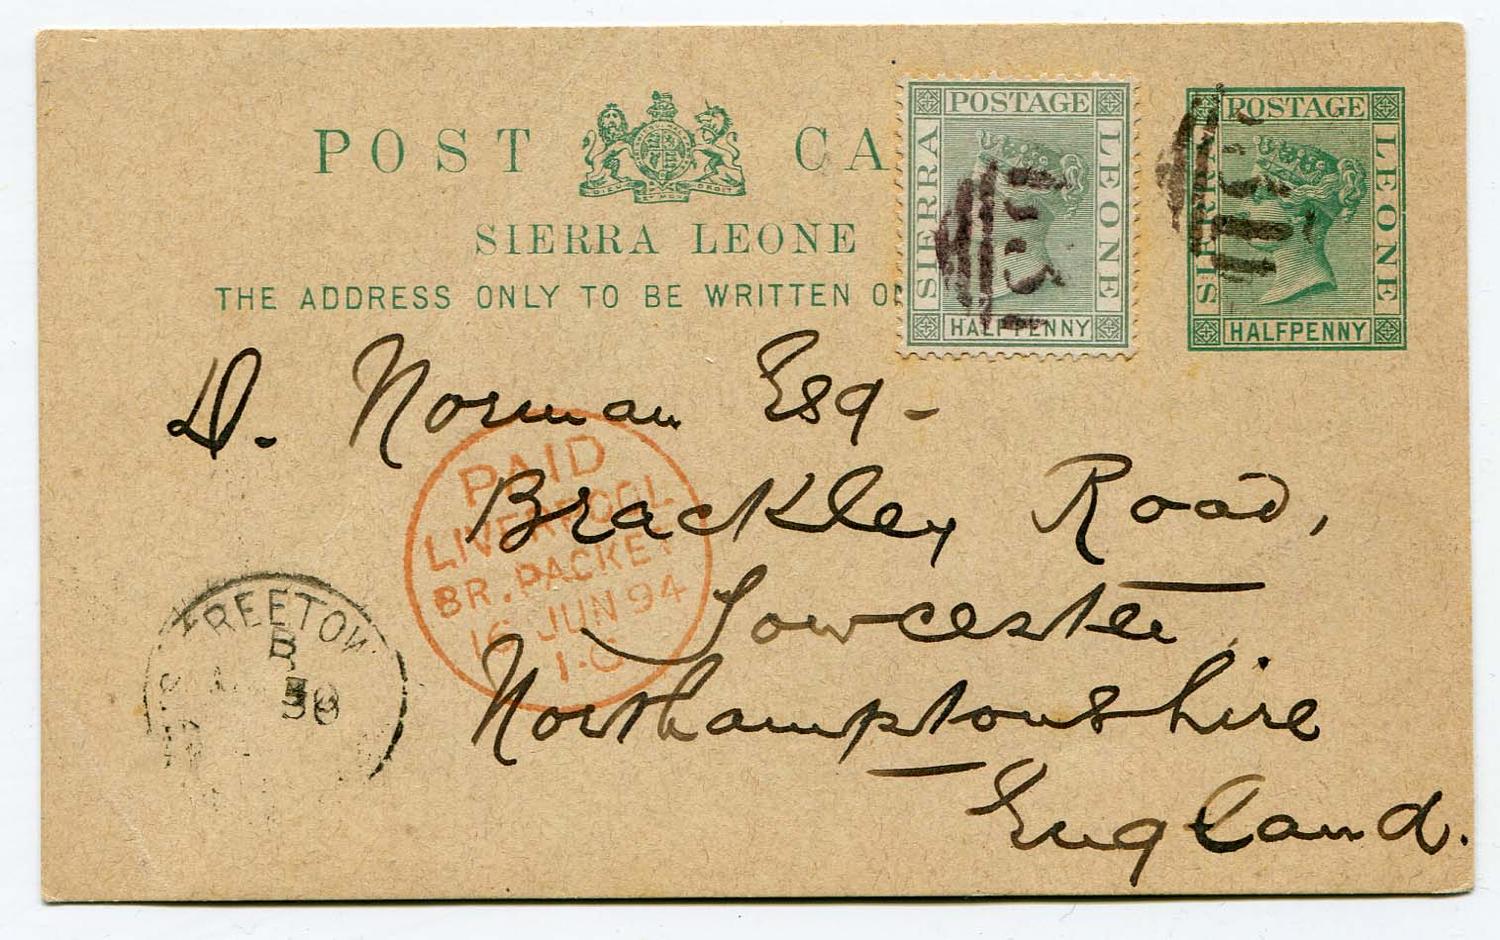 POST CA
SIERRA LEONE
THE ADDRESS ONLY TO BE WRITTEN
POSTAGE
SIERRA
LEONE
HALFPENNY
POSTAGE
SIERRA
LEONE
HALFPENNY
D. Norman Esq-
Brackley Road,
Towcester
Northamptonshire
England.
PAID
LIVERPOOL
BR. PACKET
16 JUN 94
FREETOW
B